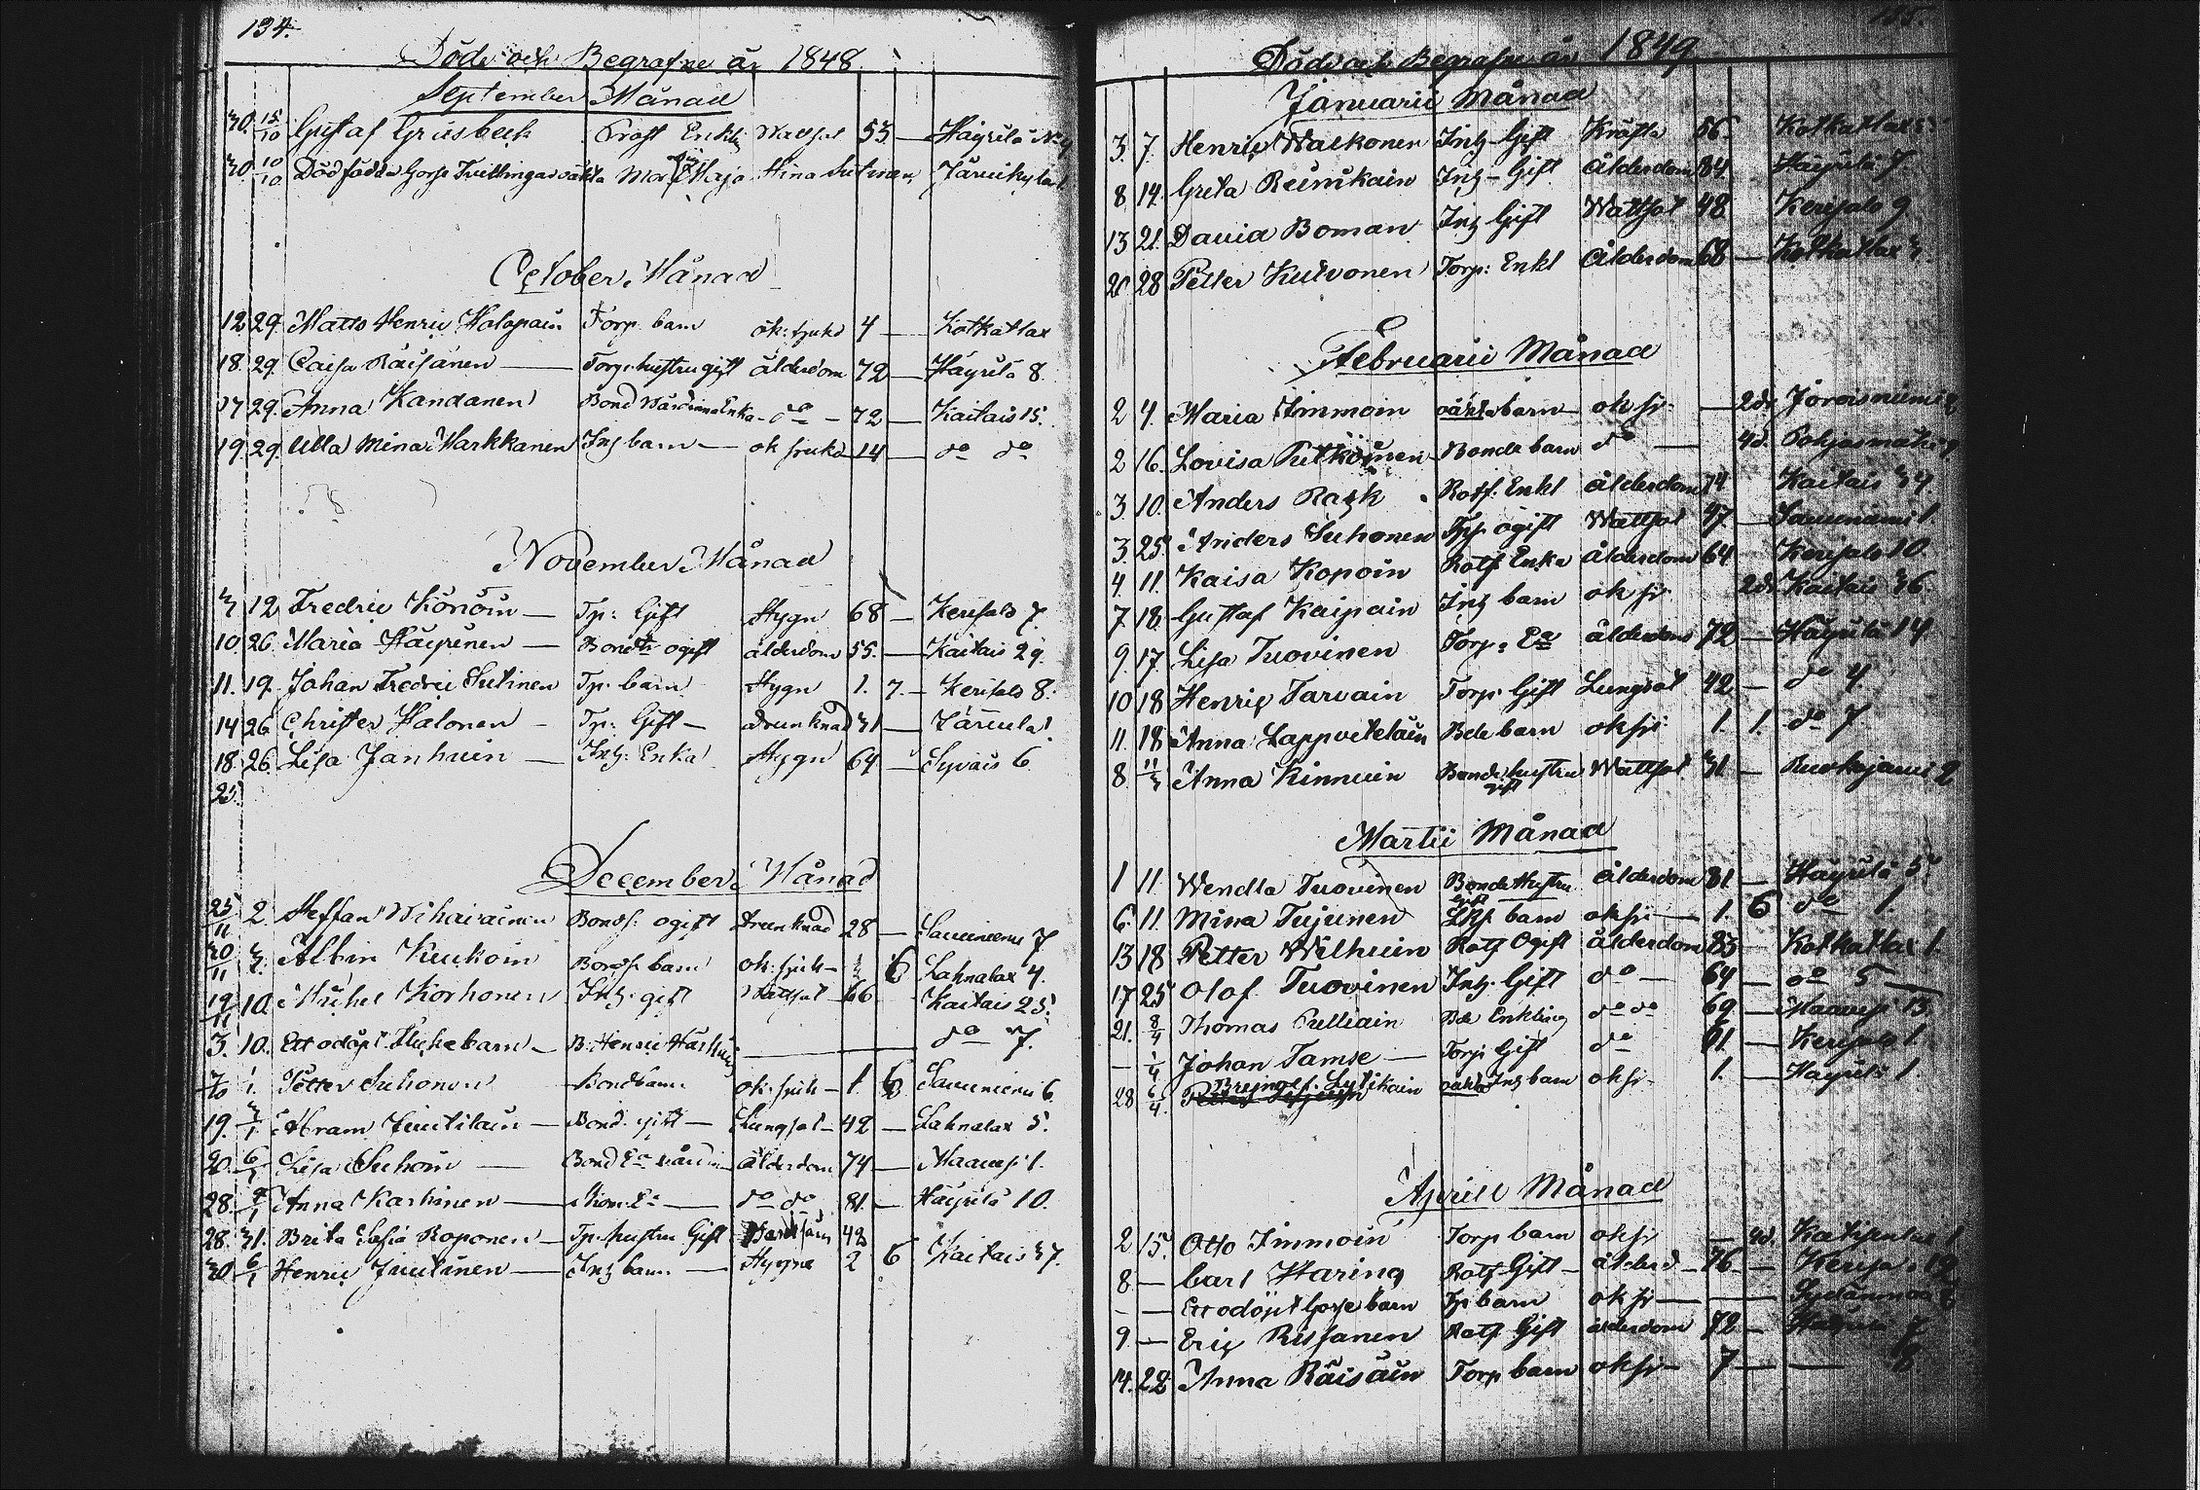 134.
Döde och Begrafne år 1848
September Månad
30. 15/10 Gustaf Grusbeck Prost Enkl Wattsot 53 — Häyrilä No 4
30. 10/10 Dödfödda Gosse Tvillingar oäkta Mor Maja Stina Sutinen, Järvikylä 1.
October Månad
12 29. Matts Henric Holopain Torp. barn ok: sjukd 4 — Kotkatlax
18. 29. Caisa Räisänen — Torp. hustru gift ålderdom 72 — Häyrilä 8.
17 29. Anna Kandanen Bond Värdinna Enka - do - 72 — Kaitais 15.
19. 29. Ulla Mina Markkanen Inh barn — ok sjukd 14 — do do
November Månad
3 12 Fredric Könöin — Tp: Gift Stygn 68 — Kerisalo 7.
10. 26. Maria Häyrinen — Bondtr ogift ålderdom 55. — Kaitais 29.
11. 19. Johan Fredric Sutinen Tp. barn Stygn 1. 7. — Kerisalo 8.
14 26 Christer Halonen — Tp: Gift — drunknad 31 —
18. 26. Lisa Janhuin — Inh: Enka Stygn 64 — Syväis 6.
25.
December Månad
25/11 2. Steffan Wihavainen Bonds. ogift Drunknad 28 — Savuniemi 7
30/11 3. Albin Kuukoin Bonds barn ok: sjuk — 6 Lahnalax 4.
19/11 10. Michel Korhonen Inh. gift Wattsot — 66 Kaitais 25.
3. 10. Ett odöpt Flickebarn — B. Henric — do 7.
Petter Suhonen Bondbarn ok: sjuk — 1. 6 Savuniemi 6.
19. Abram Juutilain — Bond. gift — Lungsot — 42 — Lahnalax 5.
20. 6/1 Lisa Suhoin — Bond Ea värdin ålderdom 74 — Maavesi 1.
28. Anna Karhinen — Ea — do do 81. — Häyrilä 10.
28. 31. Brita Sofia Roponen — Tp. hustru Gift 42
30. 6/1 Henric Juutinen — Inh barn — Stygn 2 6 Kaitais 37.
Döde och Begrafne år 1849
Januarii Månad
3. 7. Henric Walkonen Inh - Gift Kräfta 56. Kotkatlax
8. 14. Greta Reinikain Inh - Gift ålderdom 84. Häyrilä 7.
13 21. David Boman Inh Gift Wattsot 48 Kerisalo 9
20 28 Petter Kutvonen Torp: Enkl Ålderdom 68 — Kotkatlax 3.
Februarii Månad
2 4. Maria Immoin oäkta barn ok sj. — 2dr Joroisniemi
2 16. Lovisa Putkoinen Bonde barn do — 4d.
3. 10. Anders Rask Rotf. Enkl ålderdom 74 Kaitais 34.
3. 25. Anders Suhonen Tp ogift Wattsot 47 — Savuniemi 1
4. 11. Kaisa Kopoin Rotf Enka ålderdom 64 Kerisalo 10
7. 18. Gustaf Kaipain Inh barn ok sj. 2dr Kaitais 36.
9. 17. Lisa Tuovinen Torp: Ea ålderdom 72 — Häyrilä 14
10 18 Henric Tarvain Torp Gift Lungsot 42 — do 4
11. 18 Anna Lappveteläin Bde barn ok sj 1. 1. do 7.
8. 11/3 Anna Kinnuin Bonde hustru gift Wattsot 31 — 2
Martii Månad
1 11. Wendla Tuovinen Bonde Hustru Gift ålderdom 81 — Häyrilä 5
6. 11. Mina Tujunen barn ok sj — 1. 6 do 1.
13 18 Petter Wilhuin Rotf Ogift ålderdom 83 — Kotkatlax 1.
17 25 Olof Tuovinen Inh. Gift do — 64 — do 5 —
21. 8/4 Thomas Pulliain Bde Enkling do do 69. — Maavesi 13.
— 1/4 Johan Tamse — Torp Gift do 61. — Kerisalo 1
28 Lytikain oäkta Inh barn ok sj — 1. — Häyrilä 1
Aprill Månad
2 15. Otto Immoin Torp barn ok sj — 4d.
8 — Carl Haring Rotf Gift — ålderd — 76 —
- — Ett odöpt Gosse barn Tp barn ok sj —
9 — Eric Rissanen Rotf Gift ålderdom 72 — Häyrilä 7
14. 22. Anna Räisäin Torp barn ok sj — 7 — 8